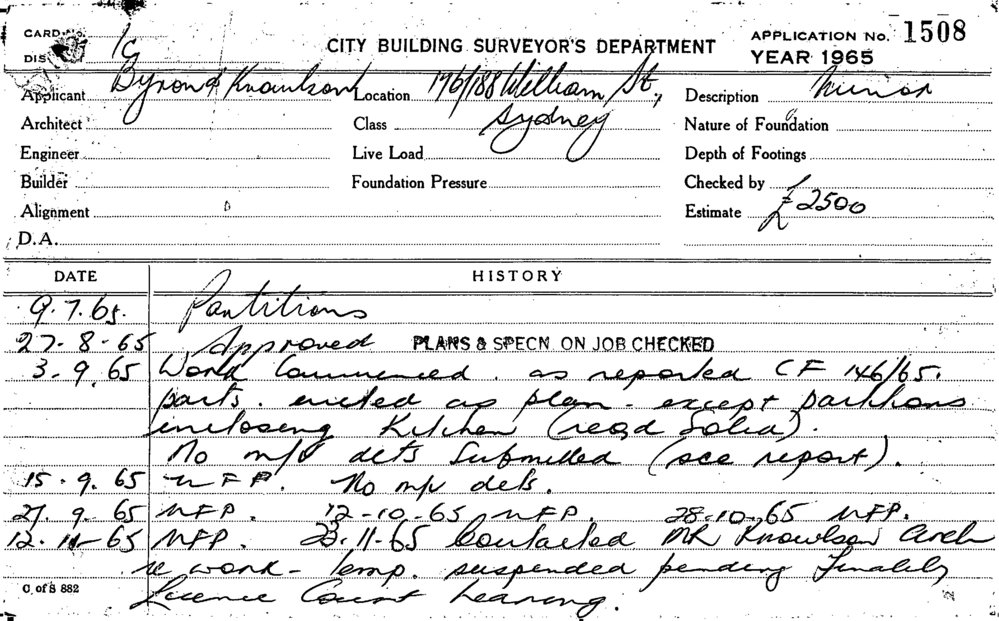 CARD No.
DIS
1G
CITY BUILDING SURVEYOR'S DEPARTMENT
APPLICATION No. 1508
YEAR 1965
Applicant Byron & Knowlson Location 176/188 William St., Description Minor
Architect Class Sydney Nature of Foundation
Engineer Live Load Depth of Footings
Builder Foundation Pressure Checked by
Alignment Estimate £2500
D.A.
DATE HISTORY
9.7.65. Partitions
27-8-65 Approved PLANS & SPECN. ON JOB CHECKED
3-9.65 Work Commenced. as reported CF 146/65.
parts. erected as plan - except partitions
enclosing Kitchen (read solid).
No m/v dets Submitted (see report).
15.9.65 NFP. No m/v dets.
27.9.65 NFP. 12-10-65 NFP. 28.10.65 NFP.
12.11-65 NFP. 23.11-65 Contacted MR Knowlson Arch
re work - temp. suspended pending
Licence Court hearing.
C. of S 882